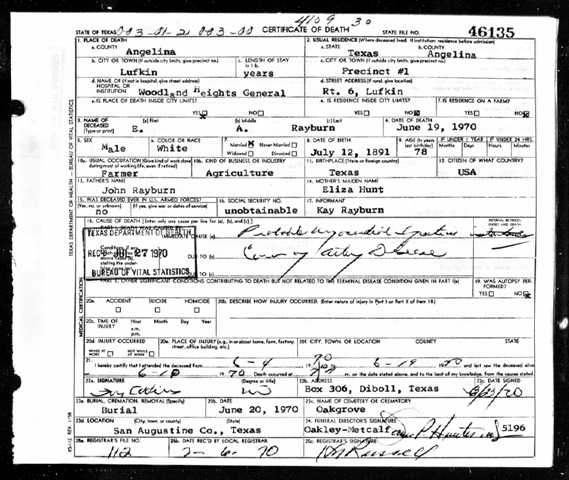 4109 30
STATE OF TEXAS
CERTIFICATE OF DEATH
STATE FILE NO. 46135
1. PLACE OF DEATH
a. COUNTY
Angelina
2. USUAL RESIDENCE (Where deceased lived. If institution: residence before admission)
a. STATE
Texas
b. COUNTY
Angelina
b. CITY OR TOWN (If outside city limits, give precinct no.)
Lufkin
c. LENGTH OF STAY
years
c. CITY OR TOWN (If outside city limits, give precinct no.)
Precinct #1
d. NAME OF (If not in hospital, give street address)
HOSPITAL OR
INSTITUTION
Woodland Heights General
d. STREET ADDRESS (If rural, give location)
Rt. 6, Lufkin
e. IS PLACE OF DEATH INSIDE CITY LIMITS?
YES NO
e. IS RESIDENCE INSIDE CITY LIMITS?
YES NO
f. IS RESIDENCE ON A FARM?
YES NO
3. NAME OF
DECEASED
(Type or print)
(a) First
E.
(b) Middle
A.
(c) Last
Rayburn
4. DATE OF DEATH
June 19, 1970
5. SEX
Male
6. COLOR OR RACE
White
7. Married Never Married
Widowed Divorced
8. DATE OF BIRTH
July 12, 1891
9. AGE (In years
last birthday)
78
IF UNDER 1 YEAR
Months Days
IF UNDER 24 HRS.
Hours Min.
10a. USUAL OCCUPATION (Give kind of work done
during most of working life, even if retired)
Farmer
10b. KIND OF BUSINESS OR INDUSTRY
Agriculture
11. BIRTHPLACE (State or foreign country)
Texas
12. CITIZEN OF WHAT COUNTRY?
USA
13. FATHER'S NAME
John Rayburn
14. MOTHER'S MAIDEN NAME
Eliza Hunt
15. WAS DECEASED EVER IN U.S. ARMED FORCES?
(Yes, no, or unknown) (If yes, give war or dates of service)
no
16. SOCIAL SECURITY NO.
unobtainable
17. INFORMANT
Kay Rayburn
18. CAUSE OF DEATH (Enter only one cause per line for (a), (b), and (c).)
TEXAS DEPARTMENT OF HEALTH
REC'D JUL 27 1970
BUREAU OF VITAL STATISTICS
DUE TO (b)
DUE TO (c)
OTHER SIGNIFICANT CONDITIONS CONTRIBUTING TO DEATH BUT NOT RELATED TO THE TERMINAL DISEASE CONDITION GIVEN IN PART I (a)
19. WAS AUTOPSY PERFORMED?
YES NO
20a. ACCIDENT SUICIDE HOMICIDE
20b. DESCRIBE HOW INJURY OCCURRED. (Enter nature of injury in Part I or Part II of item 18)
20c. TIME OF
INJURY
Hour Month Day Year
a.m.
p.m.
20d. INJURY OCCURRED
WHILE AT WORK NOT WHILE AT WORK
20e. PLACE OF INJURY (e.g., in or about home, farm, factory,
street, office building, etc.)
20f. CITY, TOWN, OR LOCATION
COUNTY
STATE
21. I hereby certify that I attended the deceased from
Death occurred at
m. on the date stated above; and to the best of my knowledge, from the causes stated
22a. SIGNATURE
(Degree or title)
22b. ADDRESS
Box 306, Diboll, Texas
22c. DATE SIGNED
23a. BURIAL, CREMATION, REMOVAL (Specify)
Burial
23b. DATE
June 20, 1970
23c. NAME OF CEMETERY OR CREMATORY
Oakgrove
23d. LOCATION (City, town, or county) (State)
San Augustine Co., Texas
24. FUNERAL DIRECTOR'S SIGNATURE
Oakley-Metcalf
5196
25a. REGISTRAR'S FILE NO.
112
25b. DATE REC'D BY LOCAL REGISTRAR
7-6-70
25c. REGISTRAR'S SIGNATURE
TEXAS DEPARTMENT OF HEALTH — BUREAU OF VITAL STATISTICS
MEDICAL CERTIFICATION